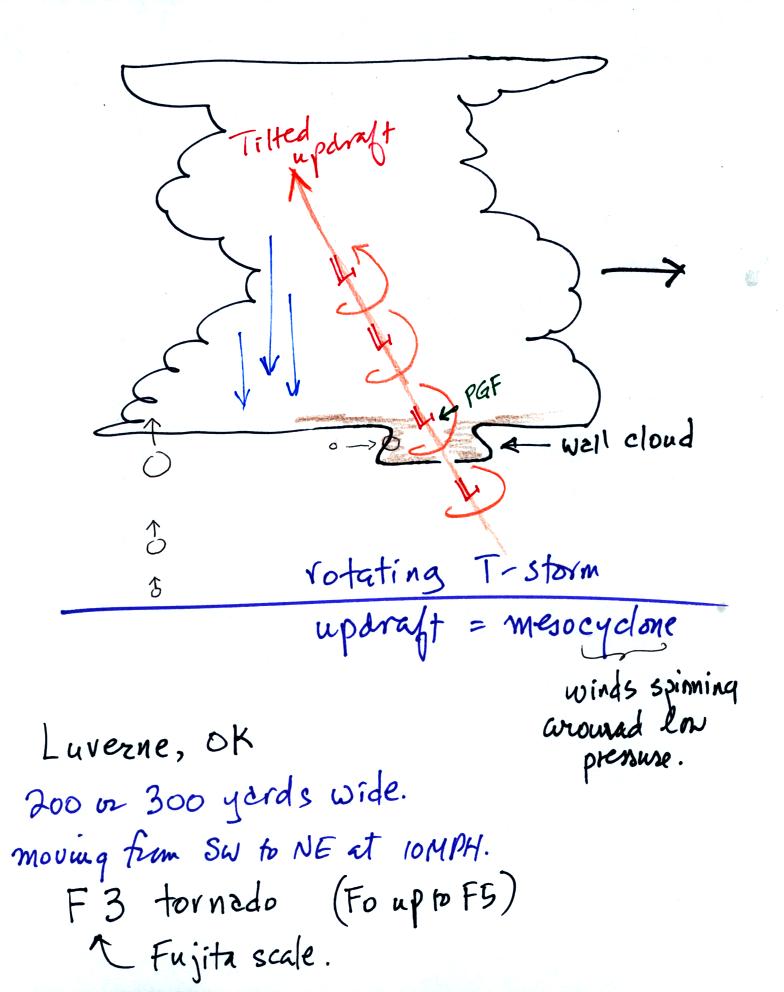 Tilted
updraft
L
L
PGF
L
wall cloud
L
rotating T-storm
updraft = mesocyclone
winds spinning
arouund low
pressure.
Luverne, OK
200 or 300 yards wide.
moving from SW to NE at 10MPH.
F3 tornado (F0 up to F5)
Fujita scale.